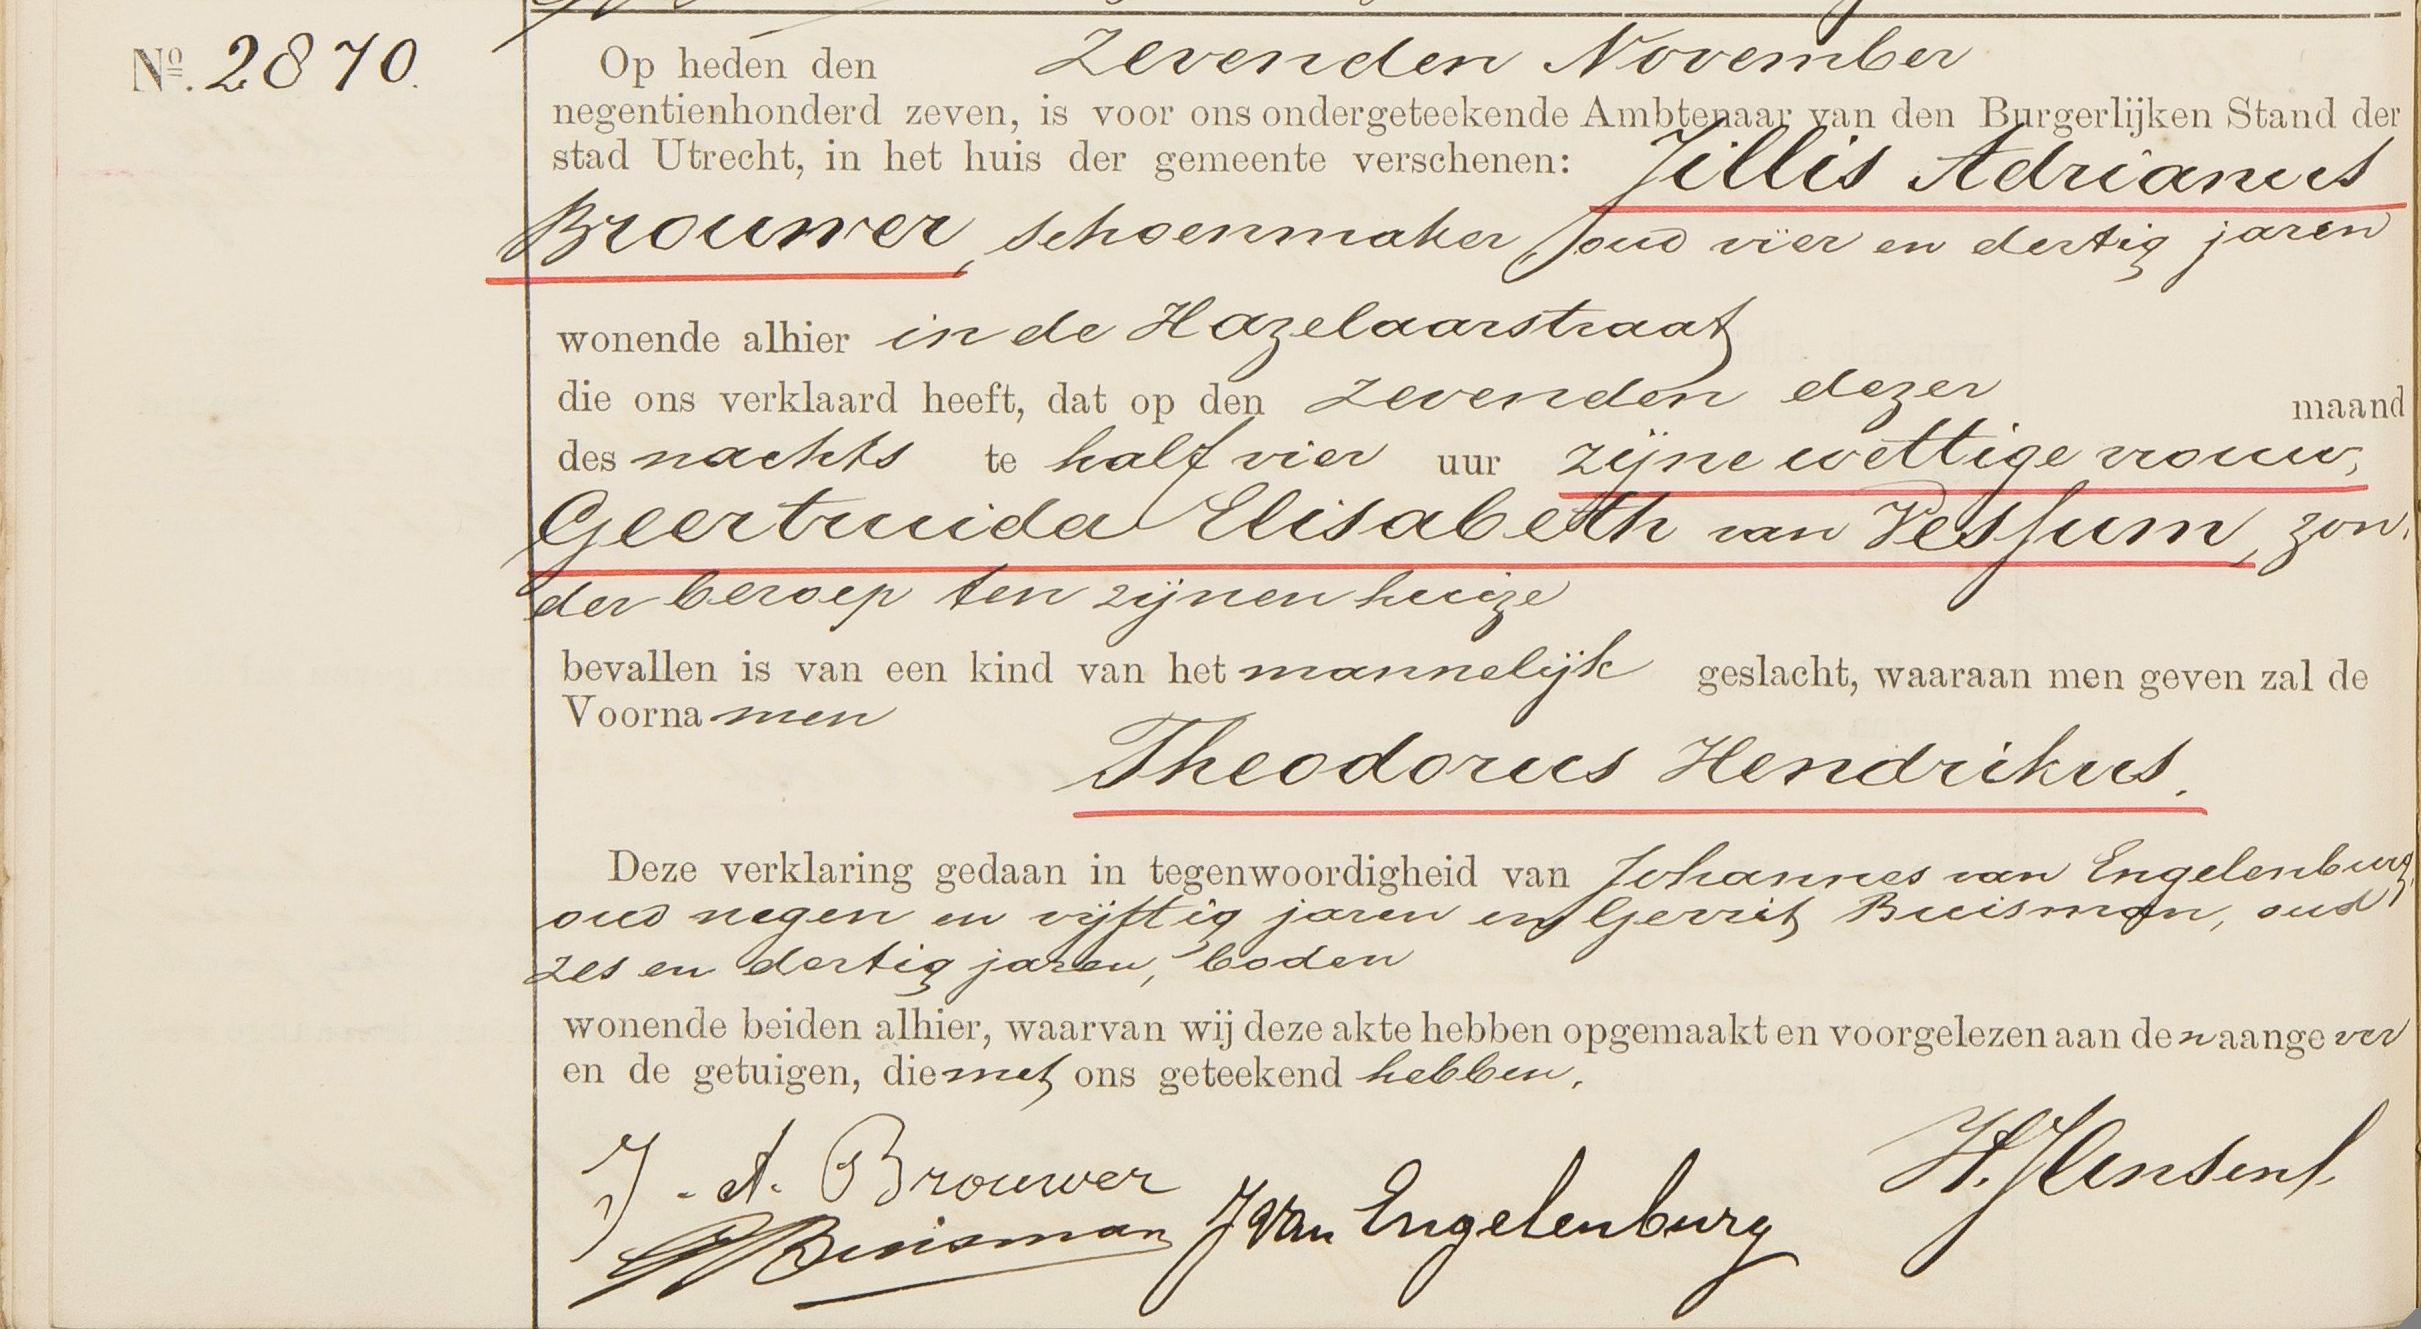 No. 2870.
Op heden den zevenden November
negentienhonderd zeven, is voor ons ondergeteekende Ambtenaar van den Burgerlijken Stand der
stad Utrecht, in het huis der gemeente verschenen: Jillis Adrianus
Brouwer, schoenmaker, oud vier en dertig jaren
wonende alhier in de Hazelaarstraat
die ons verklaard heeft, dat op den zevenden dezer maand
des nachts te half vier uur zijne wettige vrouw,
Geertruida Elisabeth van Vessum, zon,
der beroep ten zijnen huize
bevallen is van een kind van het mannelijk geslacht, waaraan men geven zal de
Voornamen
Theodorus Hendrikus.
Deze verklaring gedaan in tegenwoordigheid van Johannes van Engelenburg,
oud negen en vijftig jaren en Gerrit Buisman, oud
zes en dertig jaren, boden
wonende beiden alhier, waarvan wij deze akte hebben opgemaakt en voorgelezen aan den aangever
en de getuigen, die met ons geteekend hebben.
J. A. Brouwer
G Buisman J van Engelenburg